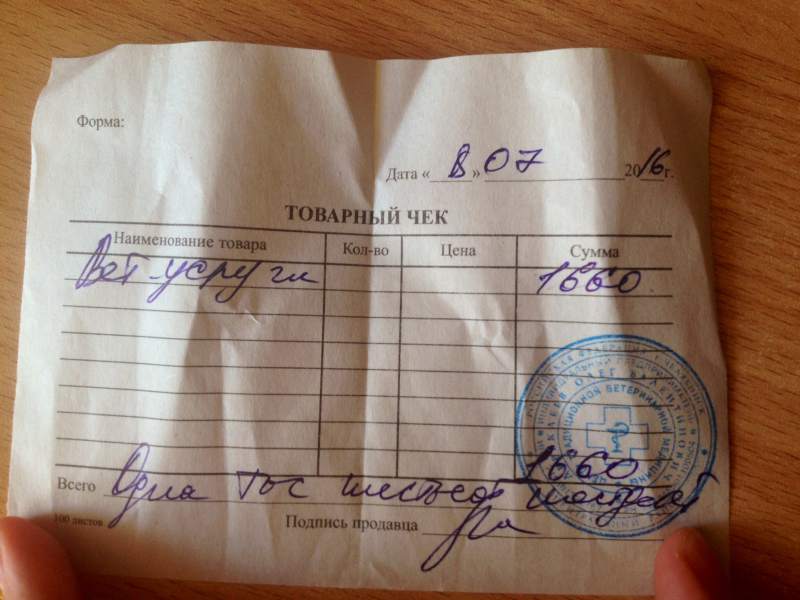 Форма:
Дата « 8 » 07 2016 г.
ТОВАРНЫЙ ЧЕК
Наименование товара Кол-во Цена Сумма
Вет-услуги 1660
1660
Всего Одна тыс шестьсот шестьдесят
100 листов Подпись продавца
ОЛЕГ ВАЛЕНТИНОВИЧ
ТРАДИЦИОННОЙ ВЕТЕРИНАРНОЙ МЕДИЦИНЫ